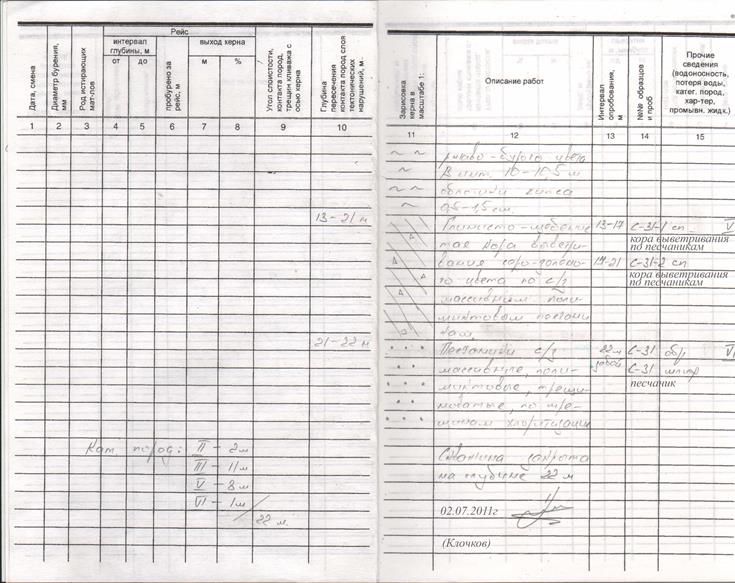 Рейс
Дата, смена
Диаметр бурения, мм
Род истирающих мат-лов
интервал глубины, м
от
до
пробурено за рейс, м
выход керна
м
%
Угол слоистости, контакта пород, трещин кливажа с осью керна
Глубина пересечения контакта пород слоя тектонических нарушений, м
1 2 3 4 5 6 7 8 9 10
13-21 м
21-22 м
Кат. пород: II - 2м
III - 11м
V - 8м
VI - 1м
22 м.
Зарисовка керна в масштабе 1:
Описание работ
Интервал опробования, м
№№ образцов и проб
Прочие сведения (водоносность, потеря воды, катег. пород, хар-тер, промывн. жидк.)
11 12 13 14 15
ржаво-бурого цвета
В инт. 10-10,5м
обломки гипса
0,5-1,5см.
Глинисто-щебенис 13-17 С-31-1 сп V
тая кора выветри- кора выветривания по песчаникам
вания серо-зелено- 17-21 С-31-2 сп
го цвета по с/з кора выветривания по песчаникам
массивным поли-
миктовым песчани
кам.
Песчаники с/з 22м С-31 обр VI
массивные, поли- забой С-31 шлиф
миктовые, трещи- песчаник
новатые, по тре-
щинам хлоритизации
Скважина закрыта
на глубине 22 м
02.07.2011г
(Клочков)